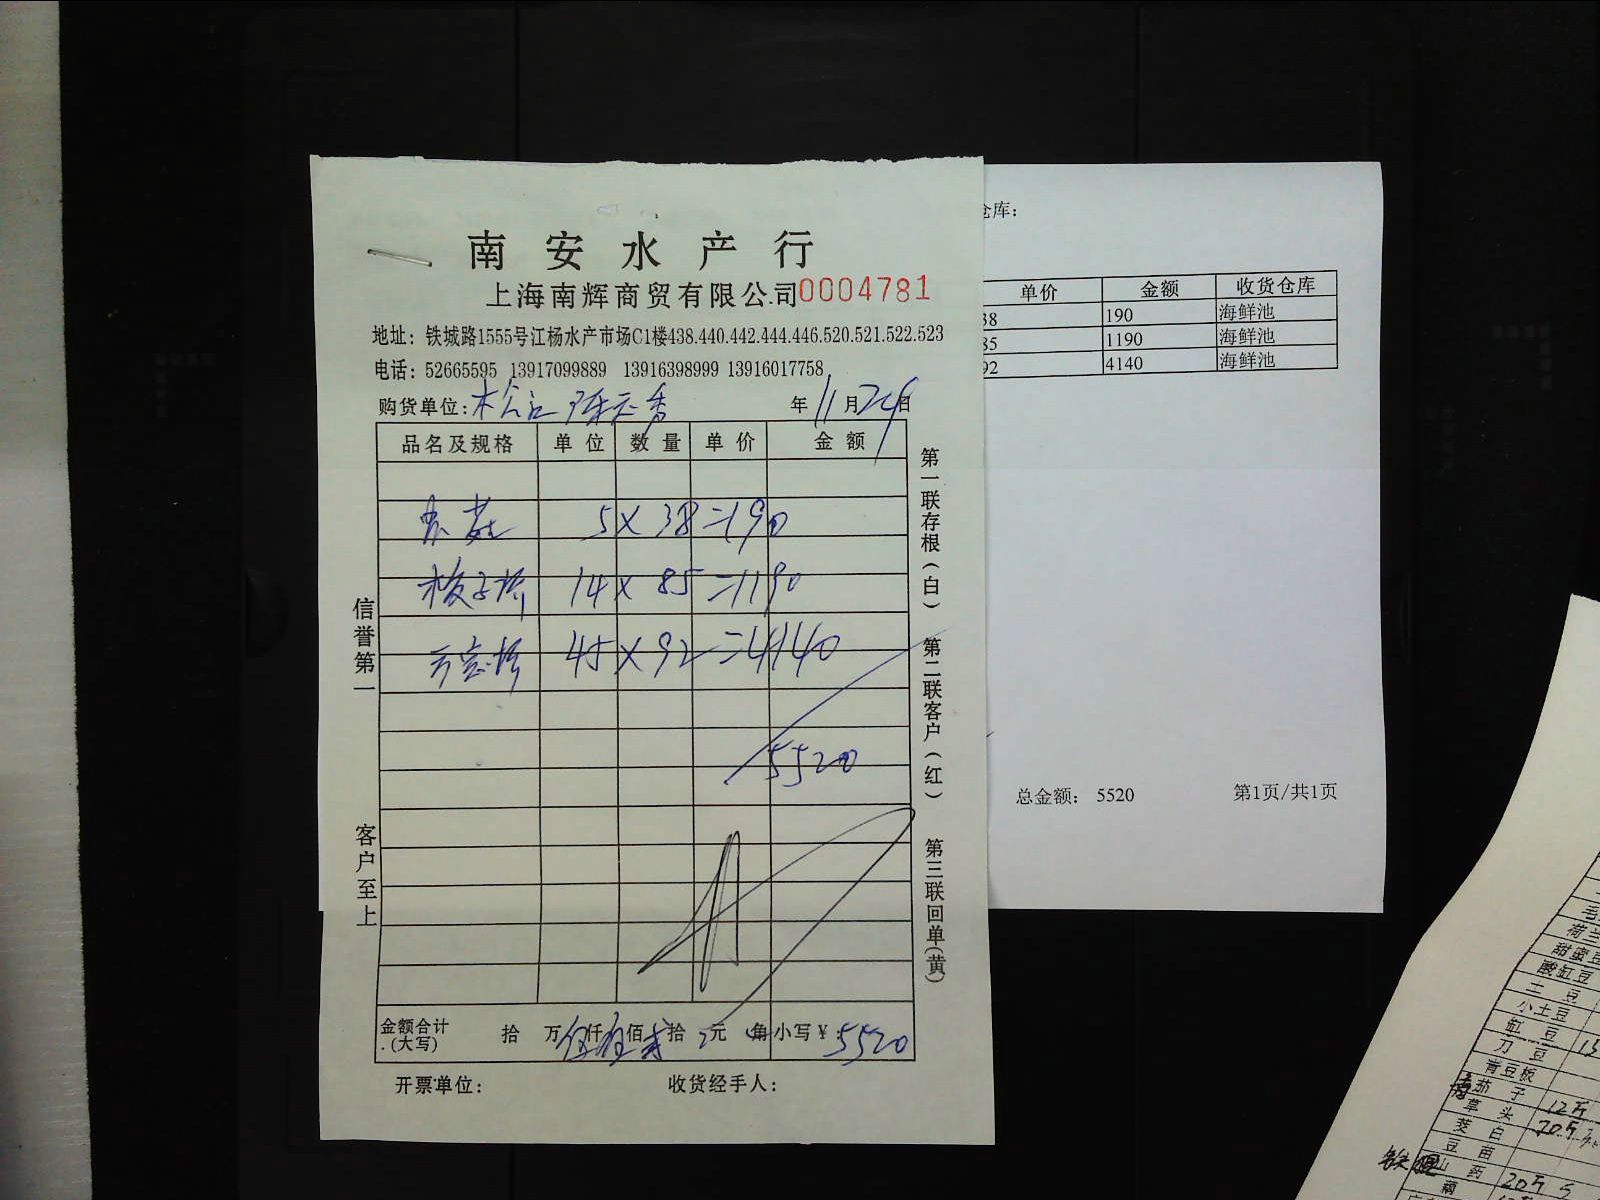 南安水产行
上海南辉商贸有限公司 0004781
地址：铁城路1555号江杨水产市场C1楼438.440.442.444.446.520.521.522.523
电话：52665595 13917099889 13916398999 13916017758
购货单位： 年 11 月 24 日
品名及规格 单位 数量 单价 金额
5 X 38 = 190
14 X 85 = 1190
45 X 92 = 4140
5520
金额合计（大写） 拾 万 伍 仟 伍 佰 贰 拾 元 角 小写￥：5520
开票单位： 收货经手人：
信誉第一
客户至上
第一联存根（白）
第二联客户（红）
第三联回单（黄）
仓库：
单价 金额 收货仓库
38 190 海鲜池
85 1190 海鲜池
92 4140 海鲜池
总金额： 5520 第1页/共1页
甜蜜豆
酸缸豆
土豆
小土豆
缸豆
刀豆
青豆板
茄子 12斤
草头
茭白
豆苗
山药
藕